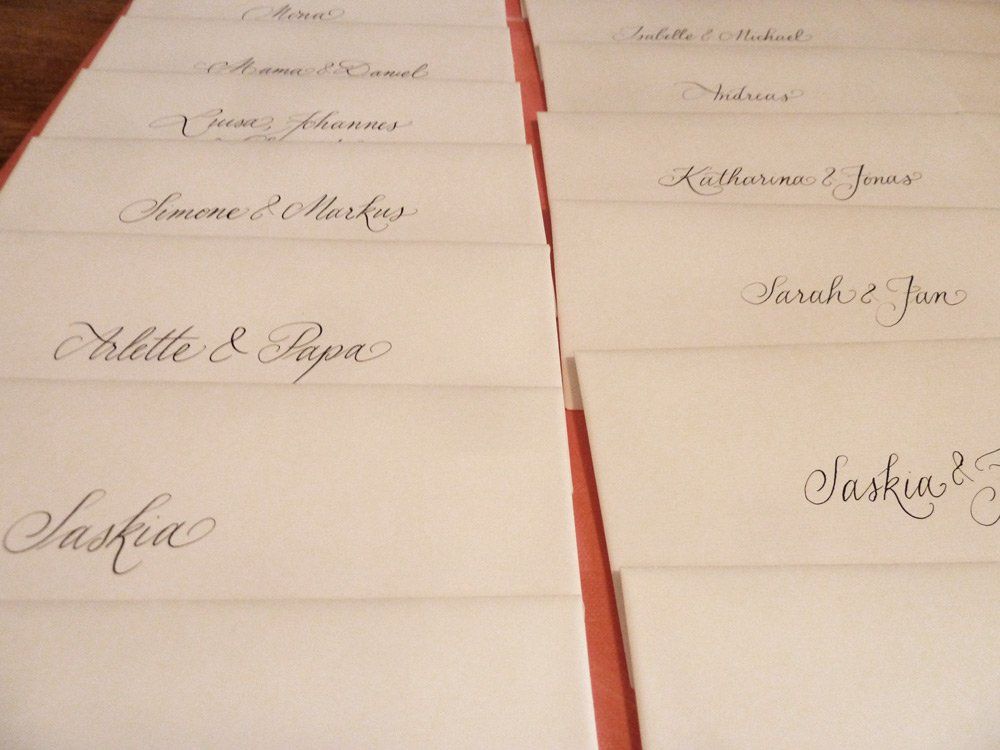 Mona
Mama & Daniel
Luisa, Johannes
Simone & Markus
Arlette & Papa
Saskia
Isabelle & Michael
Andreas
Katharina & Jonas
Sarah & Jan
Saskia & J